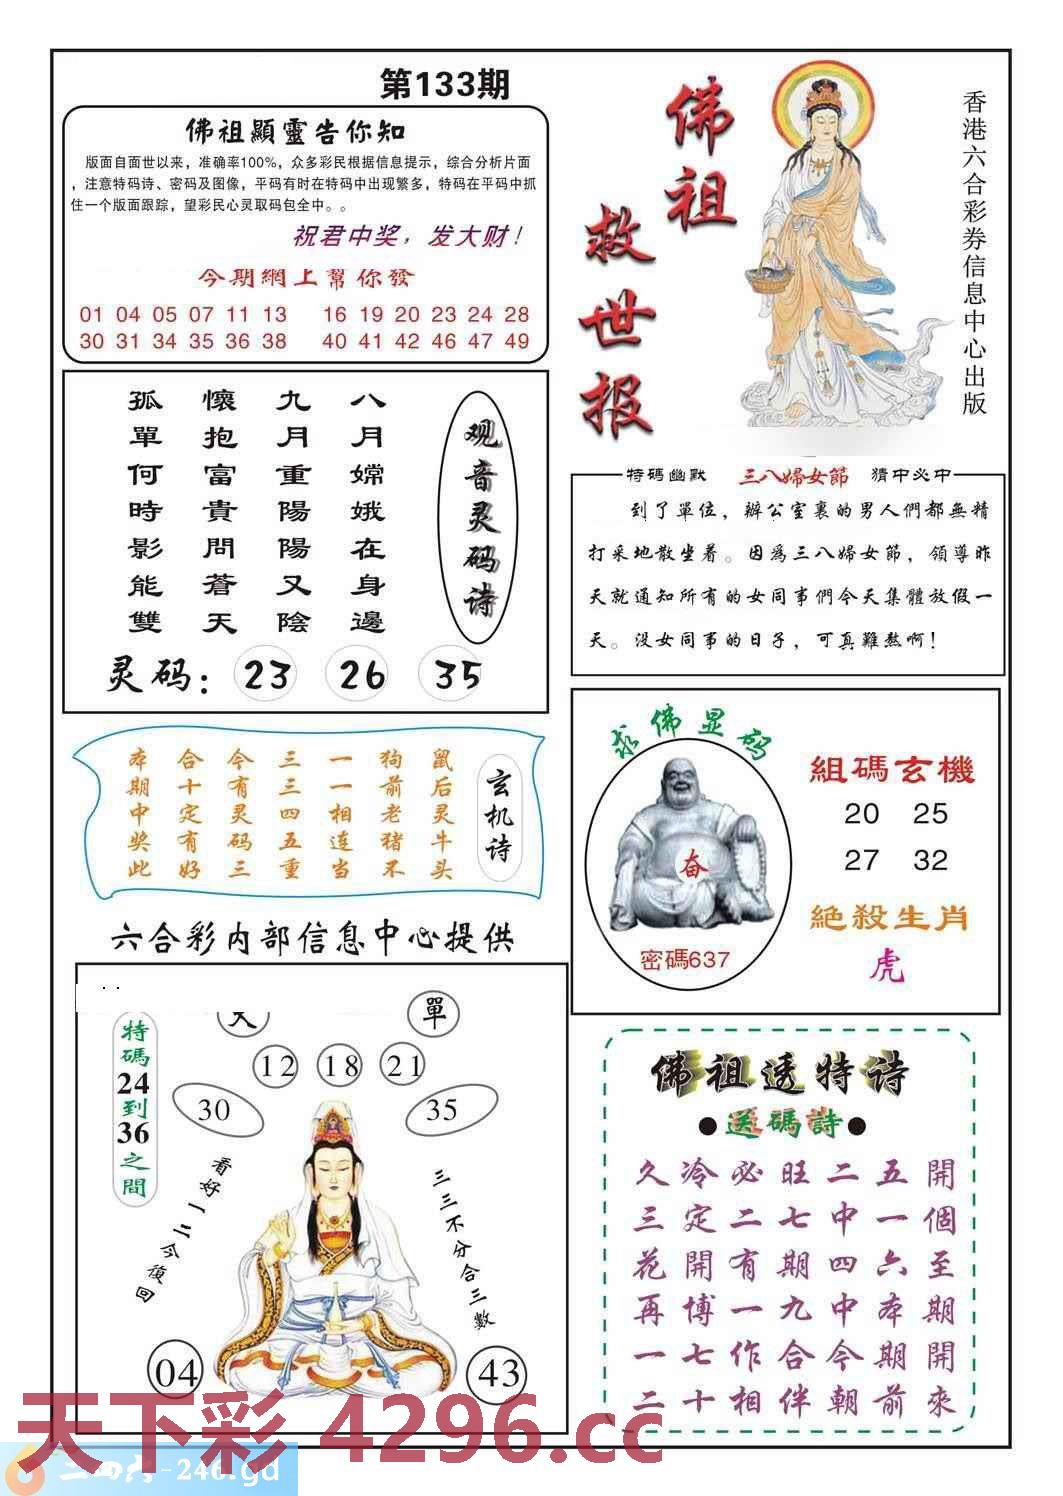 第133期
佛祖顯靈告你知
版面自面世以来，准确率100%，众多彩民根据信息提示，综合分析片面
，注意特码诗、密码及图像，平码有时在特码中出现繁多，特码在平码中抓
住一个版面跟踪，望彩民心灵取码包全中。。
祝君中奖，发大财！
今期網上幫你發
01 04 05 07 11 13 16 19 20 23 24 28
30 31 34 35 36 38 40 41 42 46 47 49
佛祖
救世报
香港六合彩券信息中心出版
观音灵码诗
八月嫦娥在身邊
九月重陽陽又陰
懷抱富貴問蒼天
孤單何時影能雙
灵码：23 26 35
特碼幽默 三八婦女節 猜中必中
到了單位，辦公室裏的男人們都無精
打采地散坐着。因爲三八婦女節，領導昨
天就通知所有的女同事們今天集體放假一
天。沒女同事的日子，可真難熬啊！
玄机诗
鼠后灵牛头
狗前老猪不
一一相连当
三三四五重
今有灵码三
合十定有好
本期中奖此
求佛显码
奋
密碼637
組碼玄機
20 25
27 32
絕殺生肖
虎
六合彩内部信息中心提供
單
12 18 21
30 35
特碼24到36之間
看好一二今復回
三三不分合三數
04 43
佛祖透特诗
●送碼詩●
久冷必旺二五開
三定二七中一個
花開有期四六至
再博一九中本期
一七作合今期開
二十相伴朝前來
天下彩 4296.cc
二四六-246.gd